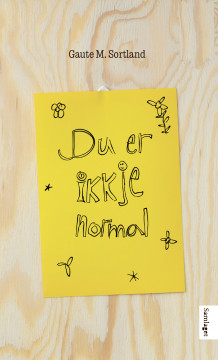 Gaute M. Sortland
Du er
ikkje
normal
Samlaget